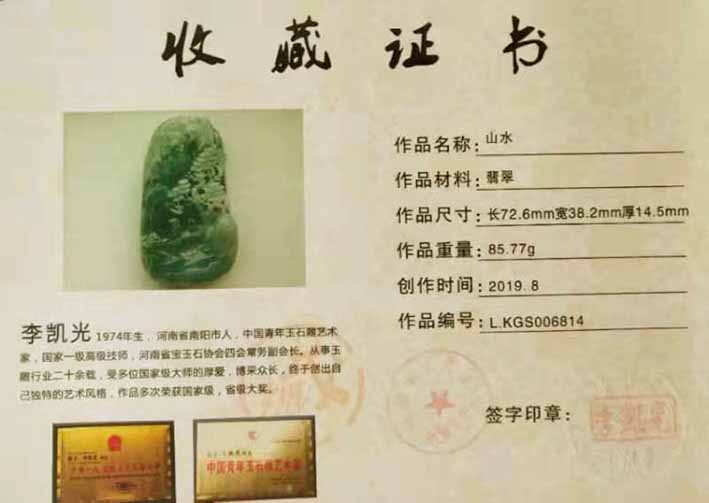 收藏证书
作品名称：山水
作品材料：翡翠
作品尺寸：长72.6mm宽38.2mm厚14.5mm
作品重量：85.77g
创作时间：2019.8
作品编号：L.KGS006814
李凯光 1974年生，河南省南阳市人，中国青年玉石雕艺术
家，国家一级高级技师，河南省宝玉石协会四会常务副会长。从事玉
雕行业二十余载，受多位国家级大师的厚爱，博采众长，终于创出自
己独特的艺术风格，作品多次荣获国家级，省级大奖。
签字印章：
李凯光
中国青年玉石雕艺术家